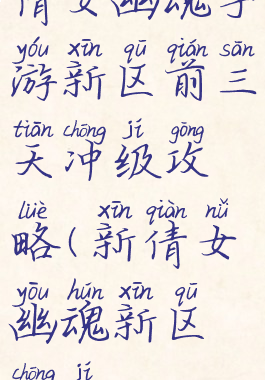 倩女幽魂手
yóu xīn qū qián sān
游新区前三
tiān chōng jí gōng
天冲级攻
lüè xīn qiàn nǚ
略(新倩女
yōu hún xīn qū
幽魂新区
chōng jí